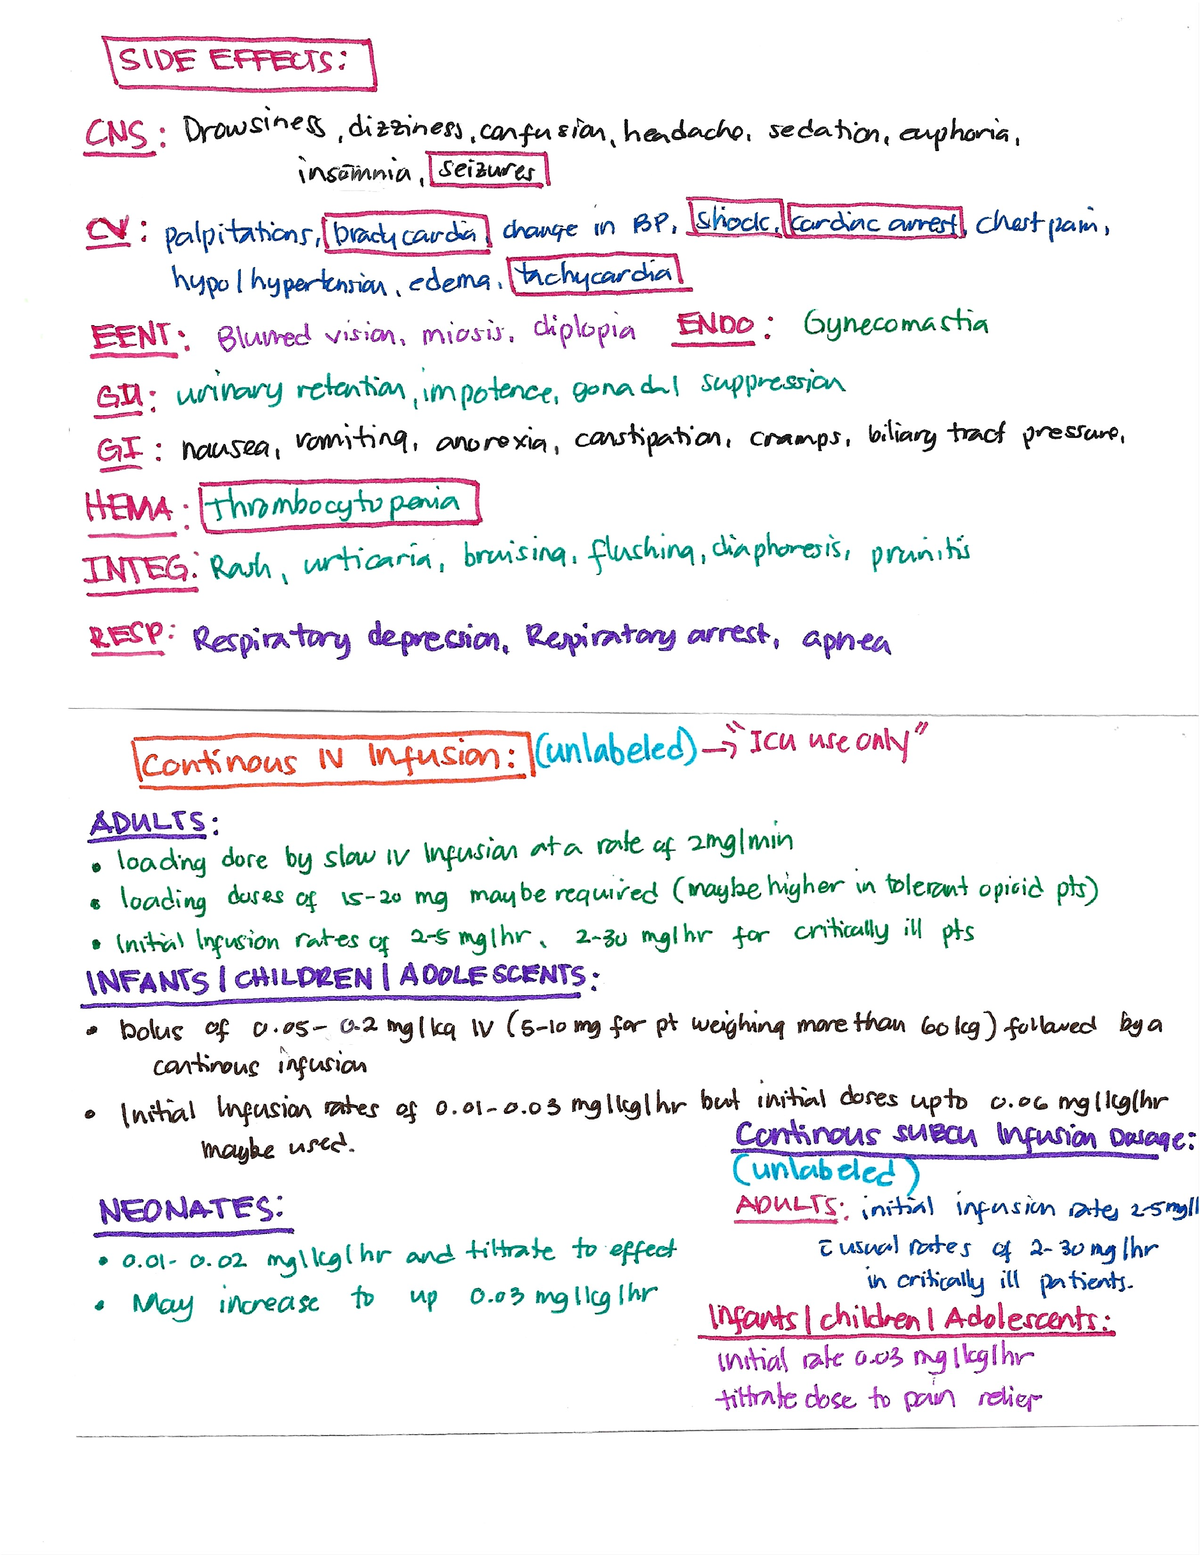 SIDE EFFECTS:
CNS: Drowsiness, dizziness, confusion, headache, sedation, euphoria,
insomnia, seizures
CV: palpitations, bradycardia, change in BP, shock, cardiac arrest, chest pain,
hypo/hypertension, edema, tachycardia
EENT: Blurred vision, miosis, diplopia ENDO: Gynecomastia
GU: urinary retention, impotence, gonadal suppression
GI: nausea, vomiting, anorexia, constipation, cramps, biliary tract pressure,
HEMA: Thrombocytopenia
INTEG: Rash, urticaria, bruising, flushing, diaphoresis, pruritis
RESP: Respiratory depression, Respiratory arrest, apnea
Continous IV Infusion: (unlabeled) → "ICU use only"
ADULTS:
• loading dose by slow IV Infusion at a rate of 2mg/min
• loading doses of 15-20 mg maybe required (maybe higher in tolerant opioid pts)
• Initial Infusion rates of 2-5 mg/hr, 2-30 mg/hr for critically ill pts
INFANTS/CHILDREN/ADOLESCENTS:
• bolus of 0.05-0.2 mg/kg IV (5-10 mg for pt weighing more than 60 kg) followed by a
continous infusion
• Initial Infusion rates of 0.01-0.03 mg/kg/hr but initial doses upto 0.06 mg/kg/hr
maybe used.
NEONATES:
• 0.01-0.02 mg/kg/hr and tiltrate to effect
• May increase to up 0.03 mg/kg/hr
Continous SUBCU Infusion Dosage:
(unlabeled)
ADULTS: initial infusion rates 2-5mg/
c̄ usual rates of 2-30 mg/hr
in critically ill patients.
Infants/children/Adolescents:
initial rate 0.03 mg/kg/hr
tiltrate dose to pain relief